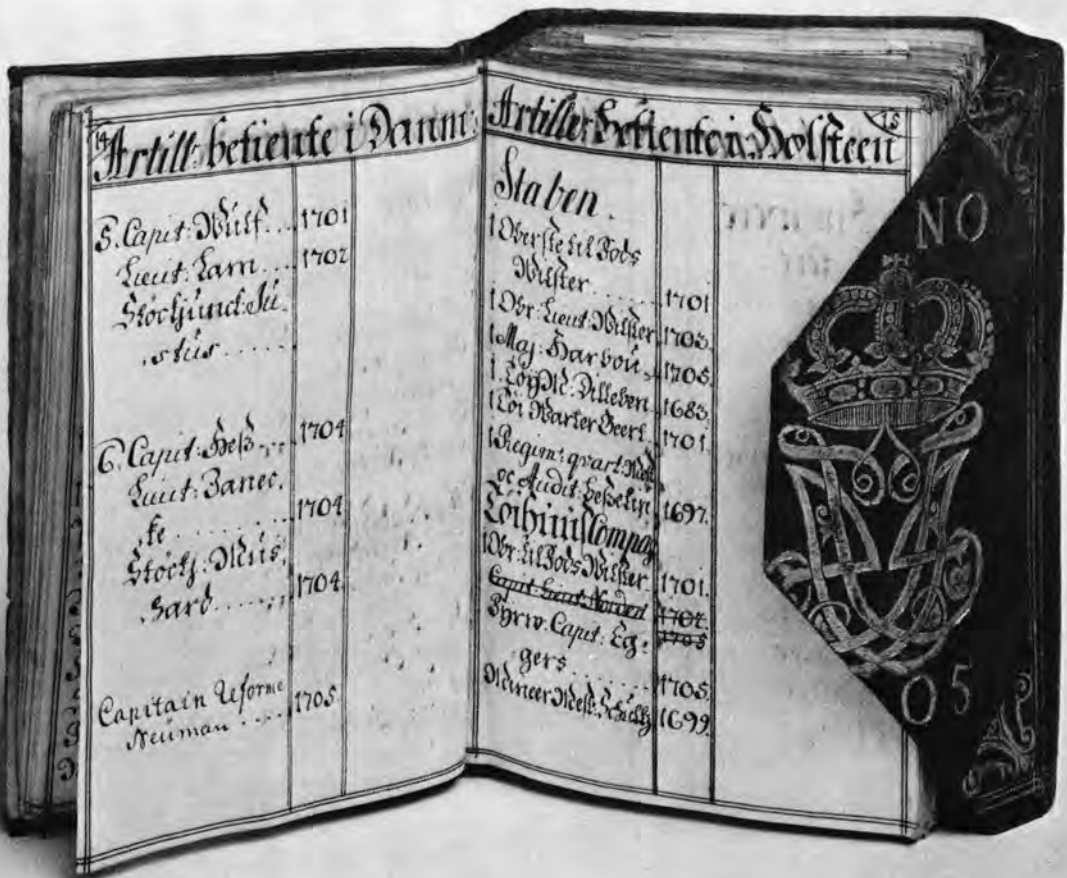 14
Artill: betiente i Danm:
5. Capit: Wulf... 1701
Lieut: Lam... 1702
Stockjunck: Ju-
stus.....
6. Capit: Heß... 1704
Lieut: Banec-
ke....... 1704
Stockj: Mus-
hard..... 1704
Capitain Reforme
Neuman.... 1705
15
Artiller: betiente i Holsteen
Staben.
1 Oberste til Fods
Wilster..... 1701
1 Obr: Lieut: Wilster 1703.
1 Maj: Harbou. 1705.
1. Töy M: Villeben. 1683.
1 Töi Warter Geert. 1701.
1 Regim: qvart: Mest
oc Audit: 1697.
Töihuus Compag
1 Obr: til Fods Wilster 1701.
Capit: Lieut: 1702.
1705
Fyrw: Capit: Eg-
gers....... 1705.
Mineer Mest: Schultz 1699.
NO
05